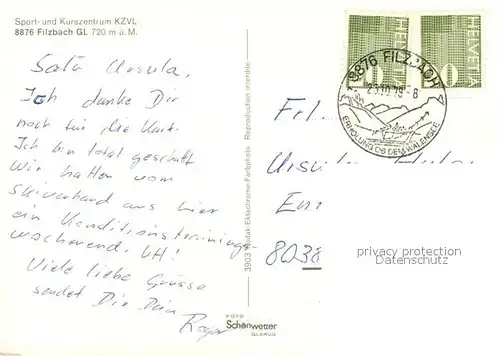 Sport- und Kurszentrum KZVL
8876 Filzbach GL 720 m ü. M.
Salü Ursula,
Ich danke Dir
noch für die Karte.
Ich bin total geschafft
Wir hatten vom
Skiverband aus hier
ein Konditionstrainings-
wochenend. Uff!
Viele liebe Grüsse
sendet Dir Dein
Roger
3903 Kodak-Ektachrome-Farbphoto Reproduction interdite
FOTO
Schönwetter
GLARUS
HELVETIA
10
HELVETIA
10
8876 FILZBACH
ERHOLUNG OB DEM WALENSEE
Frl.
Ursula
8038
privacy protection
Datenschutz